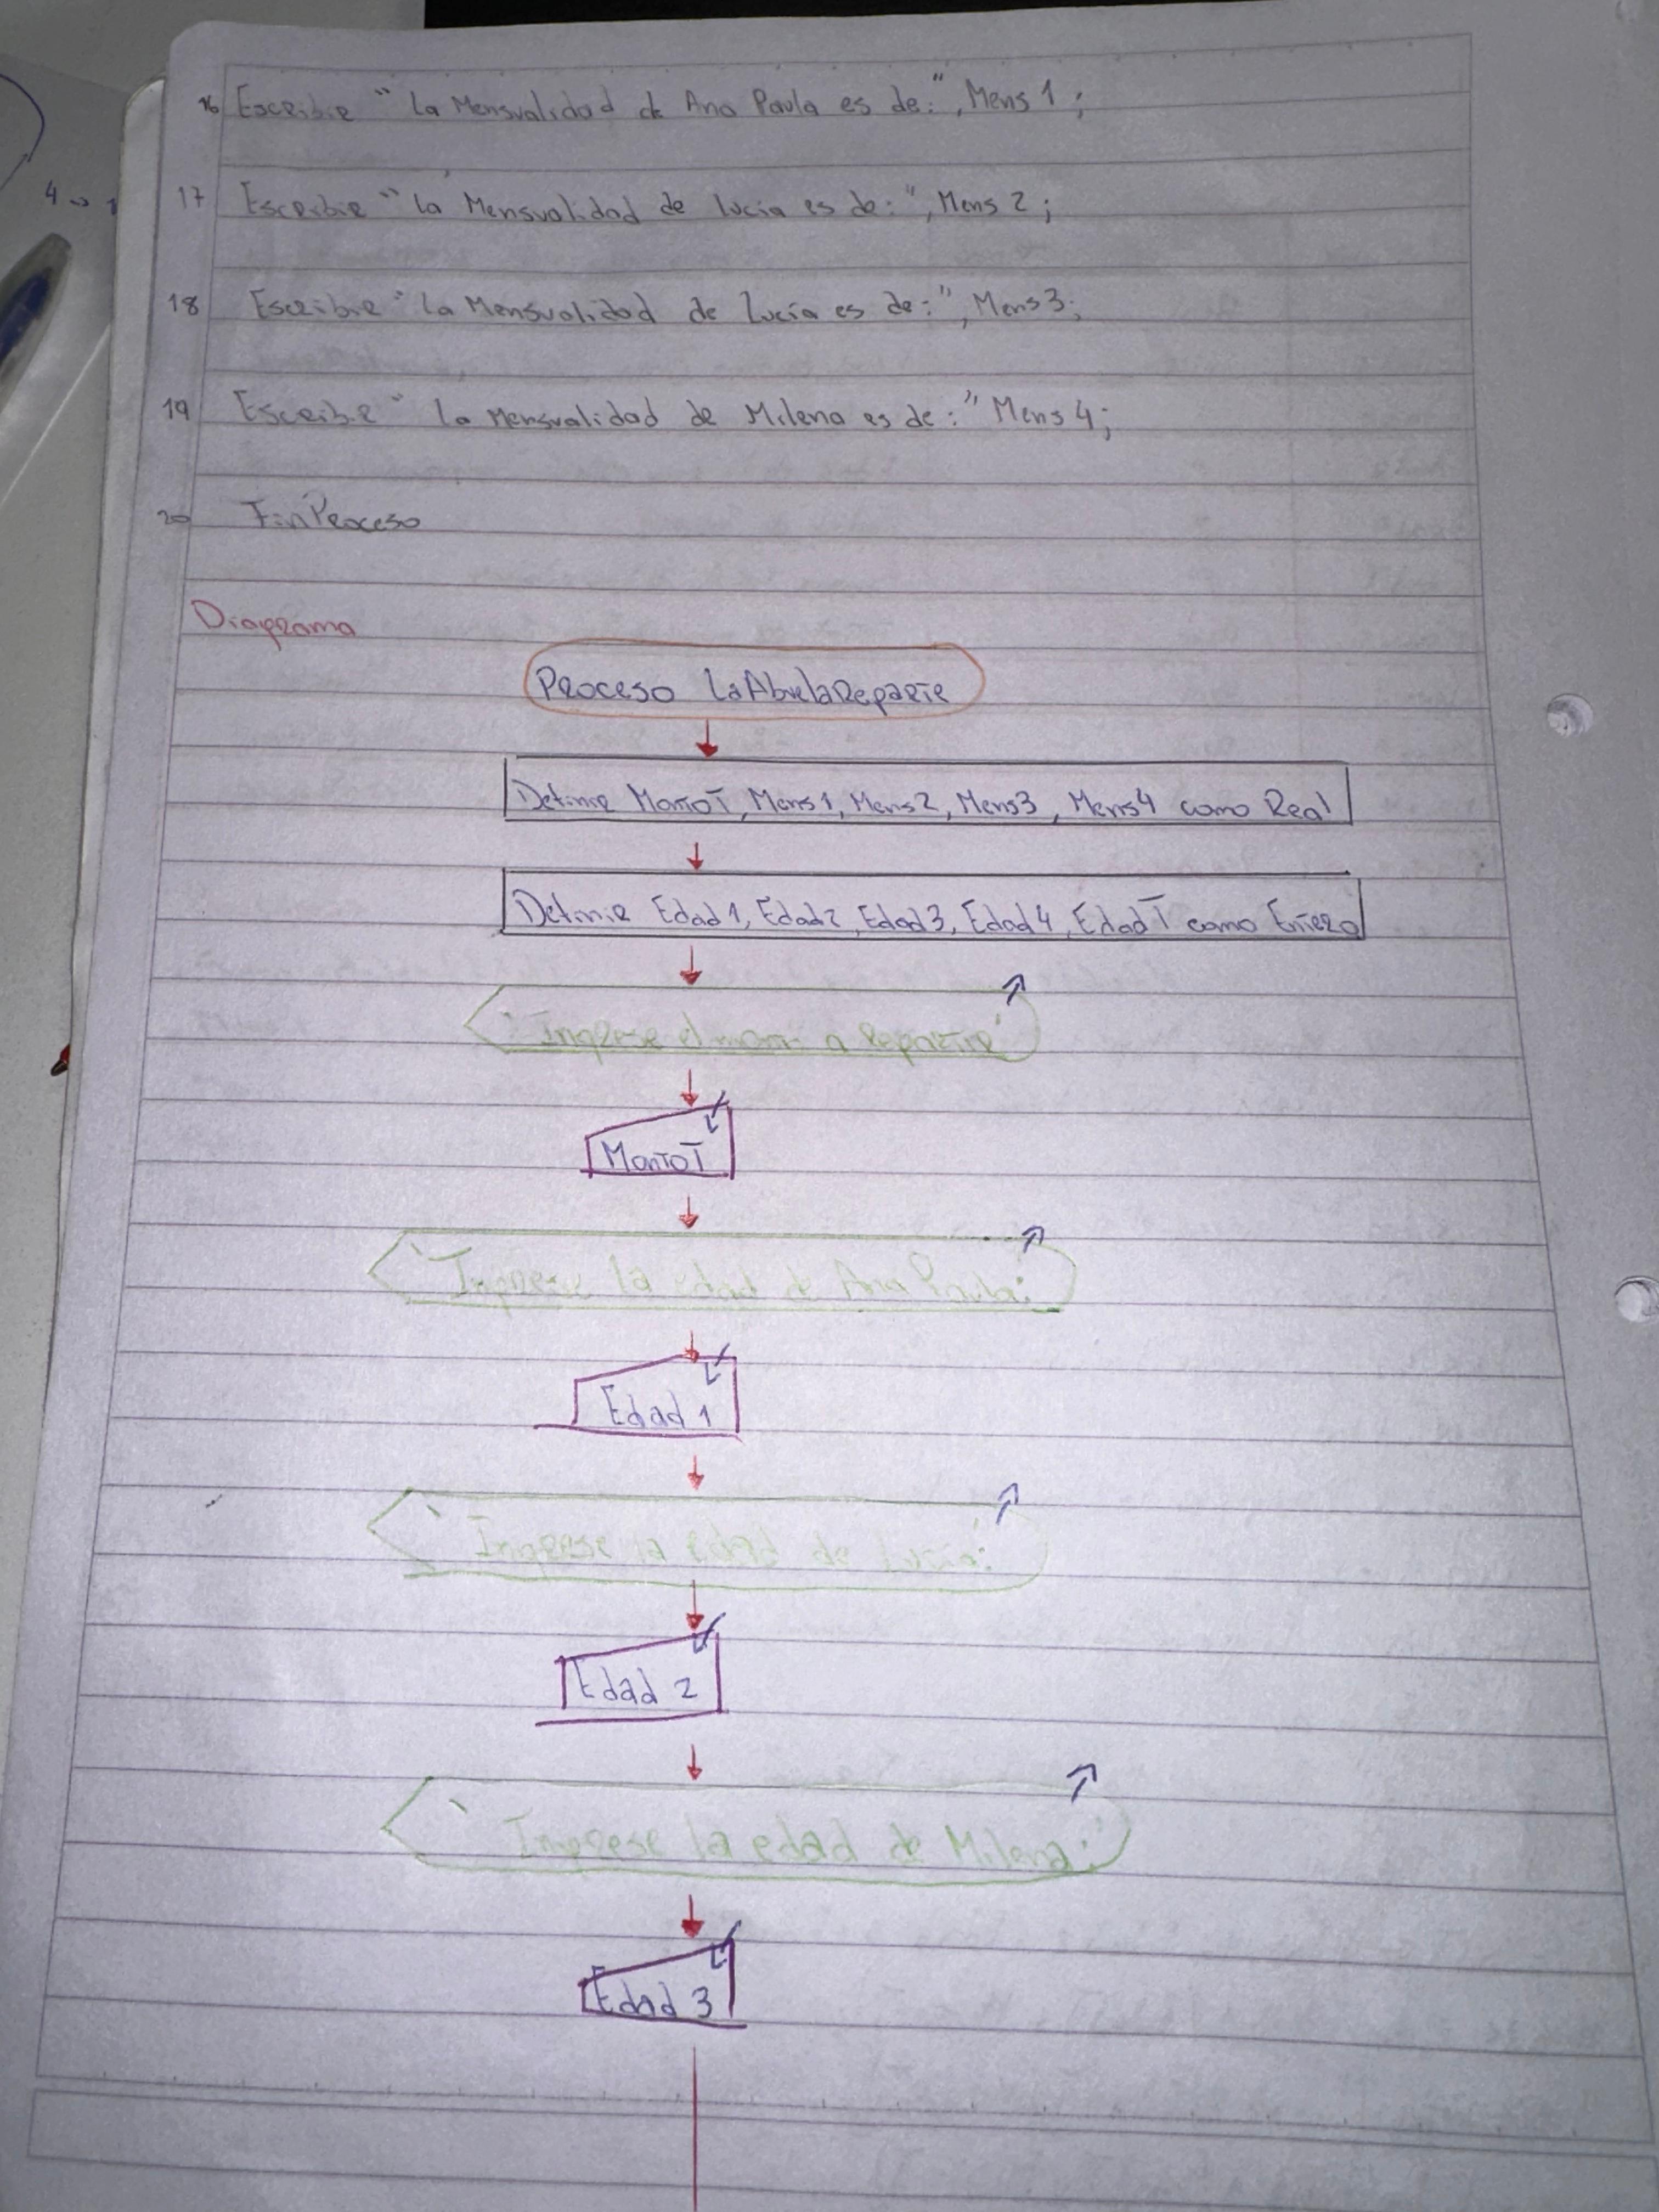 16 Escribir "La Mensualidad de Ana Paula es de:", Mens 1;
17 Escribir "La Mensualidad de lucia es de:", Mens 2;
18 Escribir "La Mensualidad de Lucía es de:", Mens3;
19 Escribir "La Mensualidad de Milena es de:" Mens 4;
20 FinProceso
Diagrama
Proceso LaAbuelaReparte
Definir MontoT, Mens1, Mens2, Mens3, Mens4 como Real
Definir Edad1, Edad2, Edad3, Edad4, EdadT como Entero
'Ingrese el a Repartir'
MontoT
'Ingrese la edad de Ana Paula:
Edad 1
'Ingrese la edad de Lucia:'
Edad 2
'Ingrese la edad de Milena:'
Edad 3
4